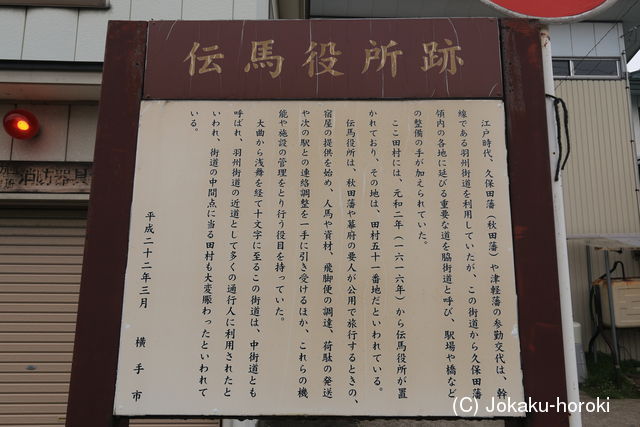 伝馬役所跡
江戸時代、久保田藩（秋田藩）や津軽藩の参勤交代は、幹
線である羽州街道を利用していたが、この街道から久保田藩
領内の各地に延びる重要な道を脇街道と呼び、駅場や橋など
の整備の手が加えられていた。
ここ田村には、元和二年（一六一六年）から伝馬役所が置
かれており、その地は、田村五十一番地だといわれている。
伝馬役所は、秋田藩や幕府の要人が公用で旅行するときの、
宿屋の提供を始め、人馬や資材、飛脚便の調達、荷駄の発送
や次の駅との連絡調整を一手に引き受けるほか、これらの機
能や施設の管理をとり行う役目を持っていた。
大曲から浅舞を経て十文字に至るこの街道は、中街道とも
呼ばれ、羽州街道の近道として多くの通行人に利用されたと
いわれ、街道の中間点に当る田村も大変賑わったといわれて
いる。
平成二十二年三月 横手市
消防器具
(C) Jokaku-horoki